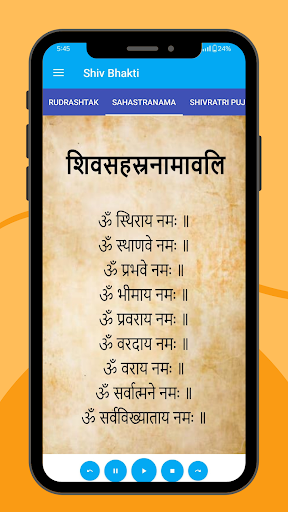 5:45
24%
Shiv Bhakti
RUDRASHTAK SAHASTRANAMA SHIVRATRI PUJ
शिवसहस्रनामावलि
ॐ स्थिराय नमः ॥
ॐ स्थाणवे नमः ॥
ॐ प्रभवे नमः ॥
ॐ भीमाय नमः ॥
ॐ प्रवराय नमः ॥
ॐ वरदाय नमः ॥
ॐ वराय नमः ॥
ॐ सर्वात्मने नमः ॥
ॐ सर्वविख्याताय नमः ॥